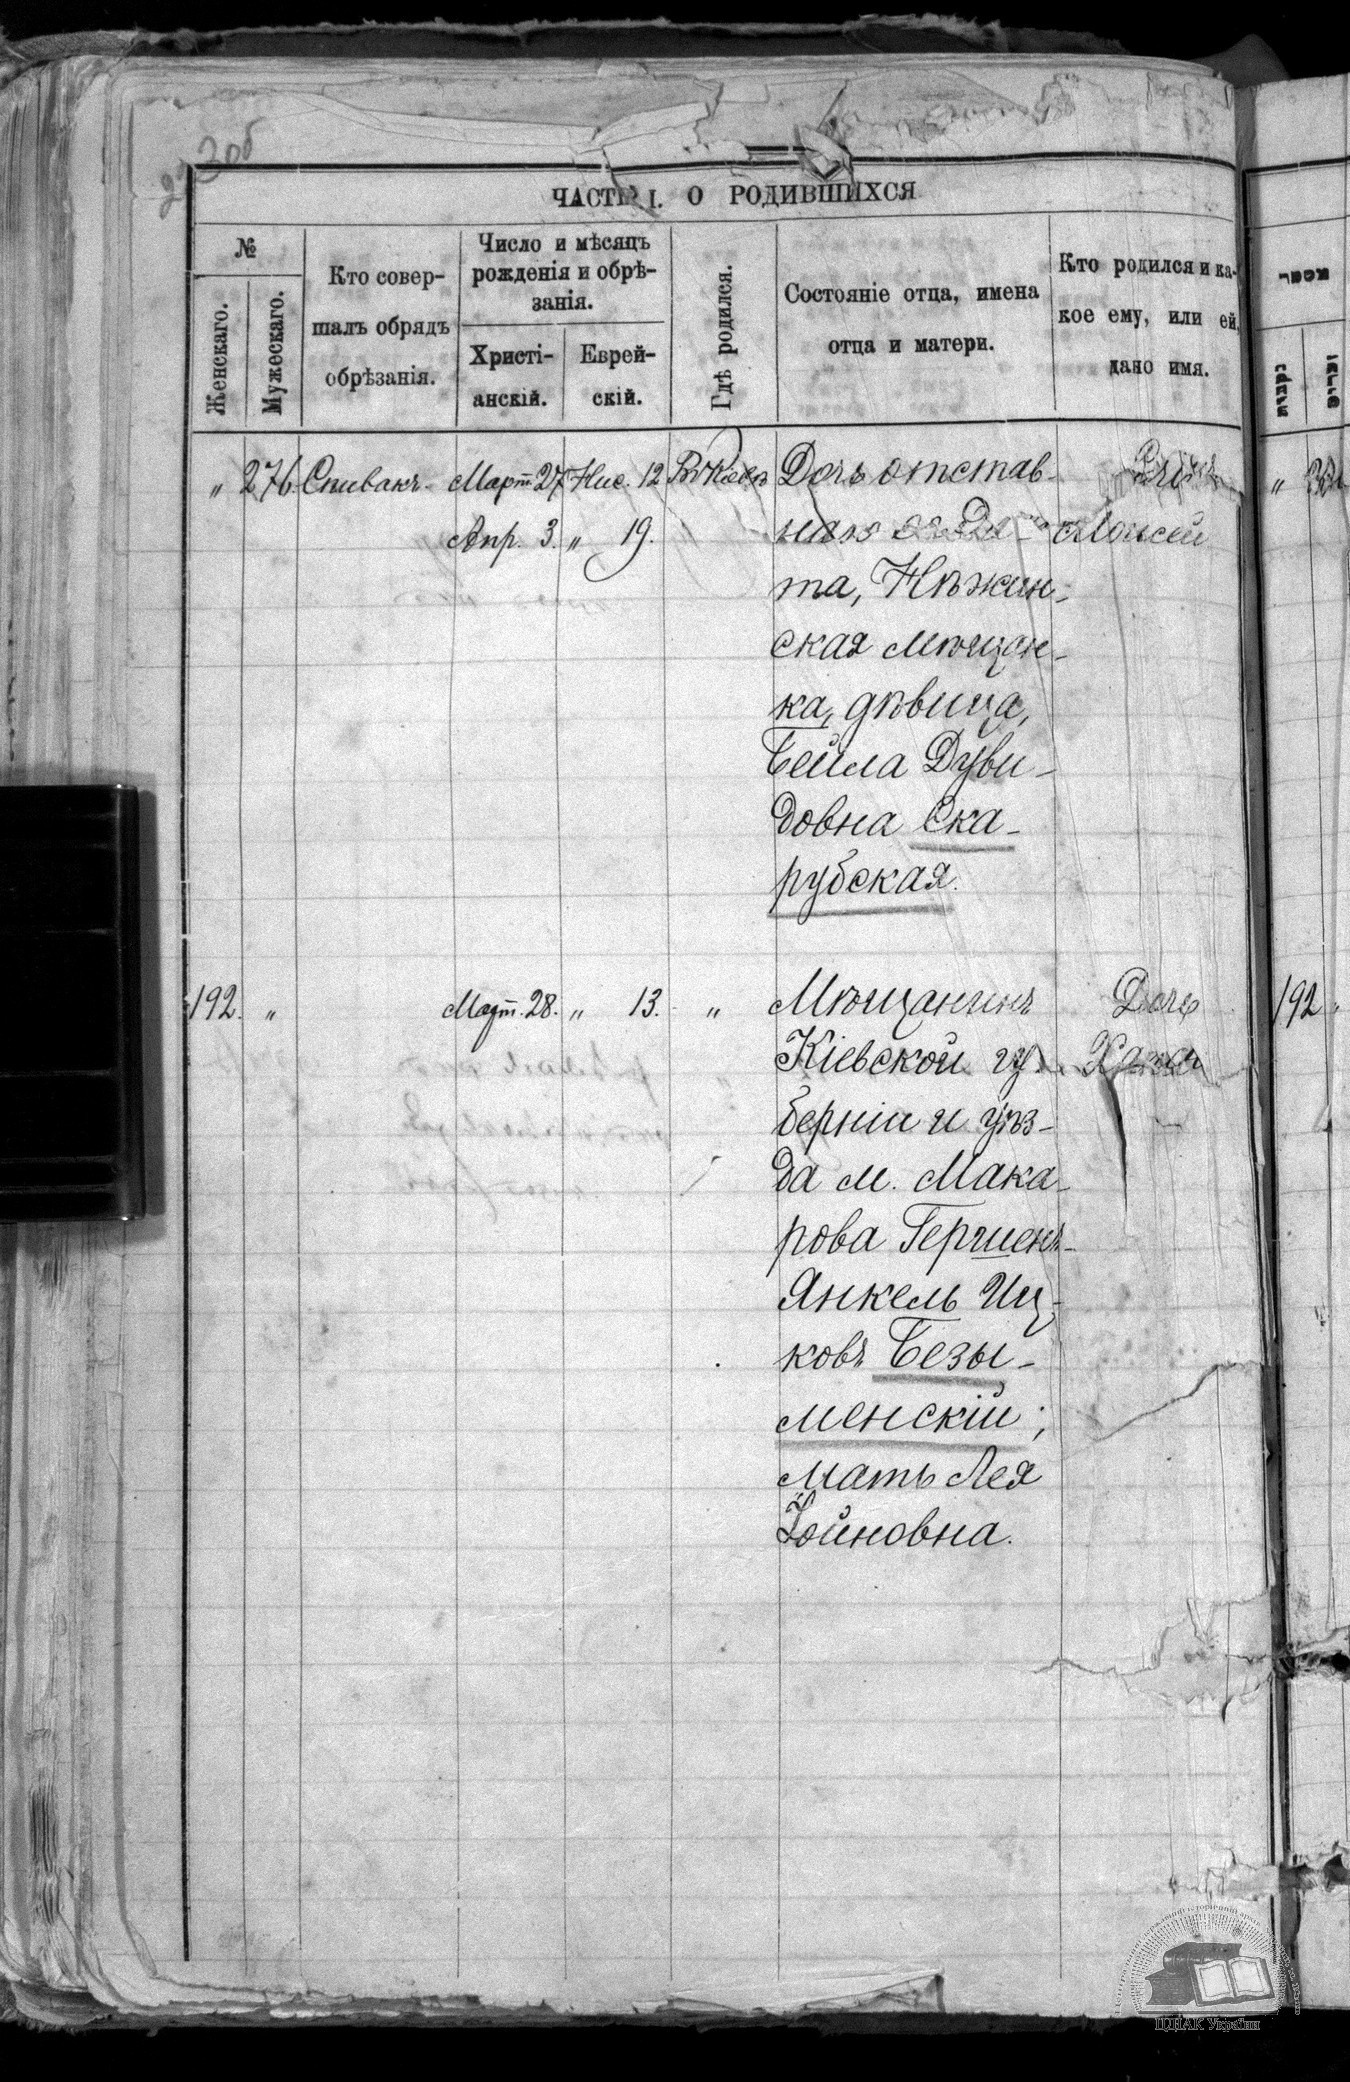 230б
ЧАСТЬ I. О РОДИВШИХСЯ
№
Женскаго.
Мужескаго.
Кто совер-
шалъ обрядъ
обрѣзанія.
Число и мѣсяцъ
рожденія и обрѣ-
занія.
Христі-
анскій.
Еврей-
скій.
Гдѣ родился.
Состояніе отца, имена
отца и матери.
Кто родился и ка-
кое ему, или ей,
дано имя.
" 276 Спивакъ Март. 27 Нис. 12 Въ Кіевѣ Дочь отстав-
Апр. 3. " 19. наго солда- Моисей
та, Нѣжин-
ская мѣщан-
ка, дѣвица,
Бейла Дуви-
довна Ска-
рубская.
192. " Март. 28. " 13. " Мѣщанинъ Дочь
Кіевской гу- Хана
берніи и уѣз-
да м. Мака-
рова Гершенъ-
Янкель Иц-
ковъ Безы-
менскій;
мать Лея
Хойновна.
192 "
ЦДІАК України